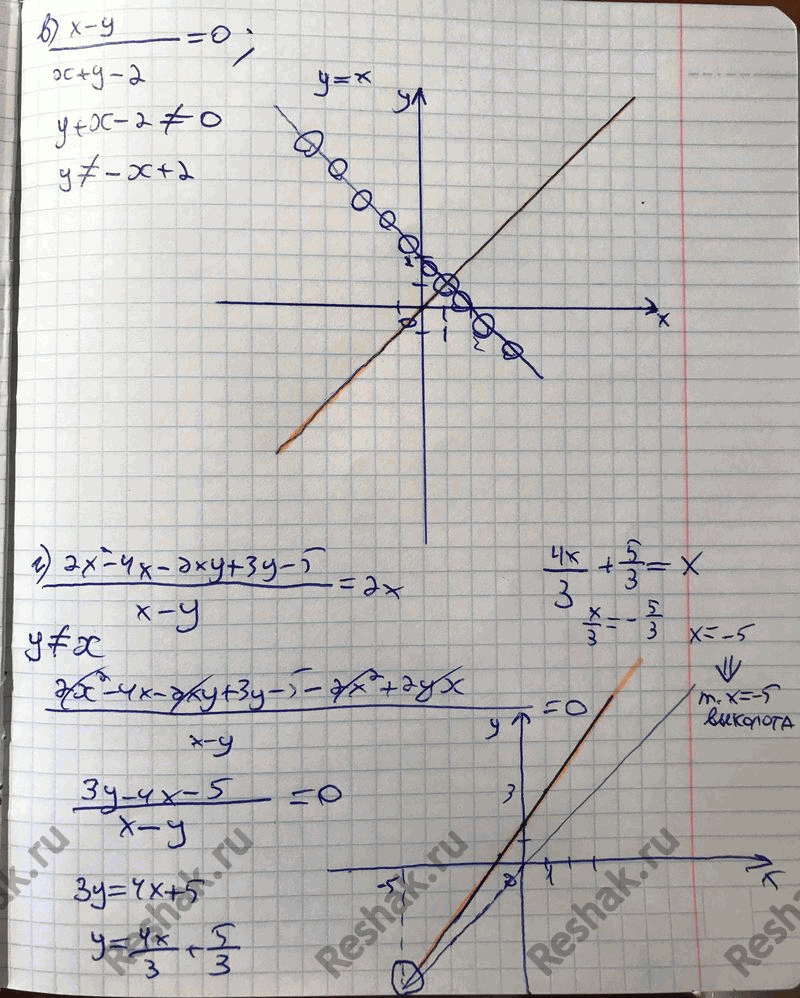 в) (x-y)/(x+y-2) = 0;
y+x-2 ≠ 0
y ≠ -x+2
y=x
y
2
0
1
2
x
г) (2x²-4x-2xy+3y-5)/(x-y) = 2x
y ≠ x
(2x²-4x-2xy+3y-5-2x²+2yx)/(x-y) = 0
(3y-4x-5)/(x-y) = 0
3y=4x+5
y=4x/3+5/3
4x/3 + 5/3 = x
x/3 = -5/3
x=-5
⇓
т. x=-5
выколота
y
3
-5
0
1
x
Reshak.ru
Reshak.ru
Reshak.ru
Reshak.ru